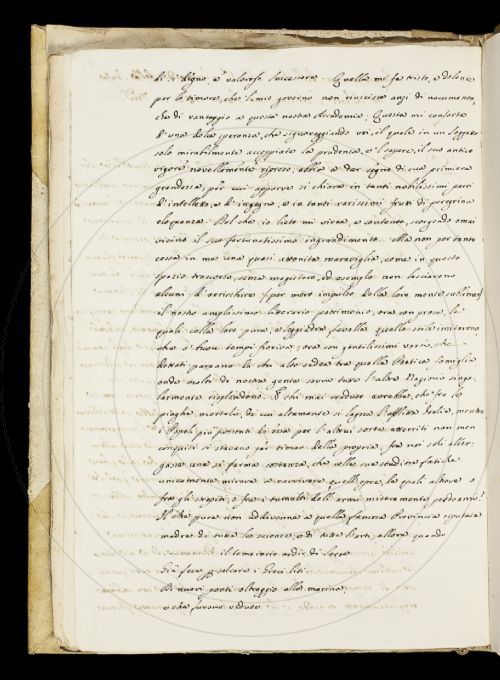 di sì degno, e valoroso successore. Quella mi fa tristo, e dolente
per lo timore, che l mio governo non riuscisse anzi di nocumento,
che di vantaggio a questa nostra Accademia; Questa mi conforta
d'una dolce speranza, che signoreggiando voi, il quale in un soggetto
solo mirabilmente accoppiate la prudenza, e 'l sapere, il suo antico
vigore novellamente ripreso, abbia a dar segno di sua primiera
grandezza, per cui apparve sì chiara in tanti nobilissimi parti
d'intelletto, e d'ingegno, e in tanti rarissimi frutti di peregrina
eloquenza. Del che io lieto mi vivea, e contento, scorgendo omai
vicino il suo fortunatissimo ingrandimento. Ma non per tanto
cosa in me una quasi attonita maraviglia, come in questo
spazio trascorso, senza magistero, ed esemplo non lasciarono
alcuni d'arricchire per mero impulso della loro mente sublime
il nostro amplissimo letterario patrimonio, ora con prose, le
quali colla loro pura, e leggiadra favella quello stile imitarono
che a buon tempi fioriva; ora con gentilissimi versi, che
dotati pareano da un alto ordine tra quella Poetica famiglia
onde molti di nostra gente sovra tutte l'altre Nazioni singo
larmente risplendono. E chi mai creduto avrebbe, che fra le
piaghe mortali, di cui altamente si lagna l'afflitta Italia, mentre
i Popoli più potenti di essa per l'altrui sorte atterriti non men
conquisi si stavano per timor della propria, fra noi soli alber-
gasse una sì ferma costanza, che alle sue studiose fatiche
unicamente mirava a ravvivare quell'opre, le quali altrove o
fra gli strepiti, o fra i tumulti dell'armi miseramente perdeansi?
Il che pure non addivenne a quella famosa Provincia riputata
madre di tutte le scienze, e di tutte l'arti, allora quando
il temerario ardir di Serse
Già fece per solcare i Greci liti
Di nuovi ponti oltraggio alla marina;
e che furono vedute